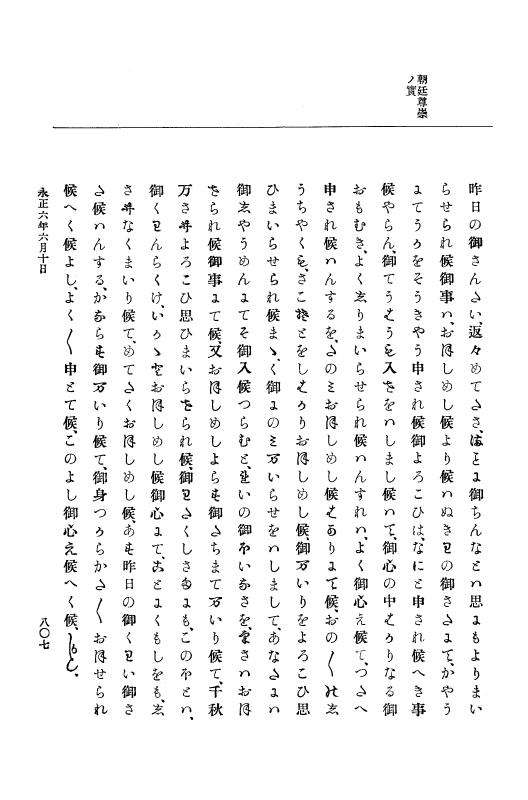 朝廷尊崇
ノ實
昨日の御さんたい、返々めてたさ、まことに御ちんなとハ思にもよりまい
らせられ候御事ハ、おほしめし候より候ハぬきわの御さたにて、かやう
にてうかをそうきやう申され候御よろこひは、なにと申され候へき事
候やらん、御てうはうを入たをハしまし候ハて、御心の中はかりなる御
おもむき、よくしりまいらせられ候ハんすれハ、よく御心え候て、つたへ
申され候ハんするを、たのミおほしめし候はかりにて候、おの〳〵れし
うちやくを、さこそとをしはかりおほしめし候、御まいりをよろこひ思
ひまいらせられ候まゝ、く御にのミまいらせをハしまして、あなたにハ
御しやうめんにてそ御入候つらむと、せいの御ほいなさを、たさハおほ
せられ候御事にて候、又おほしめしよらす御たちまてまいり候て、千秋
万さいよろこひ思ひまいらせられ候、御わたくしさまにも、このほとハ、
御くわんらくけ、いかゝとおほしめし候御心にて、ことにくもしをも、し
さいなくまいり候て、めてたくおほしめし候、あす昨日の御くわい御さ
た候ハんする、かならす御まいり候て、御身つからかた〳〵おほせられ
候へく候よし、よく〳〵申とて候、このよし御心え候へく候、かしく、
永正六年六月十日
八〇七